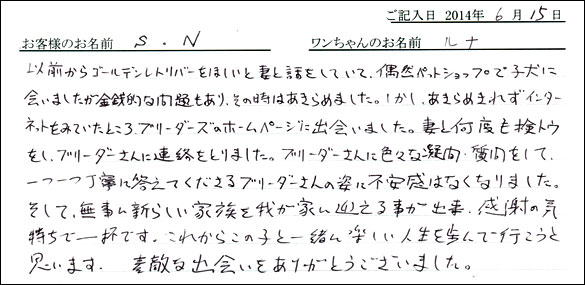 ご記入日 2014年 6月 15日
お客様のお名前 S.N ワンちゃんのお名前 ルナ
以前からゴールデンレトリバーをほしいと妻と話をしていて、偶然ペットショップで子犬に
会いましたが金銭的な問題もあり、その時はあきらめました。しかし、あきらめきれずインター
ネットをみていたところ、ブリーダーズのホームページに出会いました。妻と何度も検トウ
をし、ブリーダーさんに連絡をとりました。ブリーダーさんに色々な疑問・質問をして、
一つ一つ丁寧に答えてくださるブリーダーさんの姿に不安感はなくなりました。
そして、無事に新らしい家族を我が家に迎える事が出来、感謝の気
持ちで一杯です。これからこの子と一緒に楽しい人生を歩んで行こうと
思います。 素敵な出会いをありがとうございました。